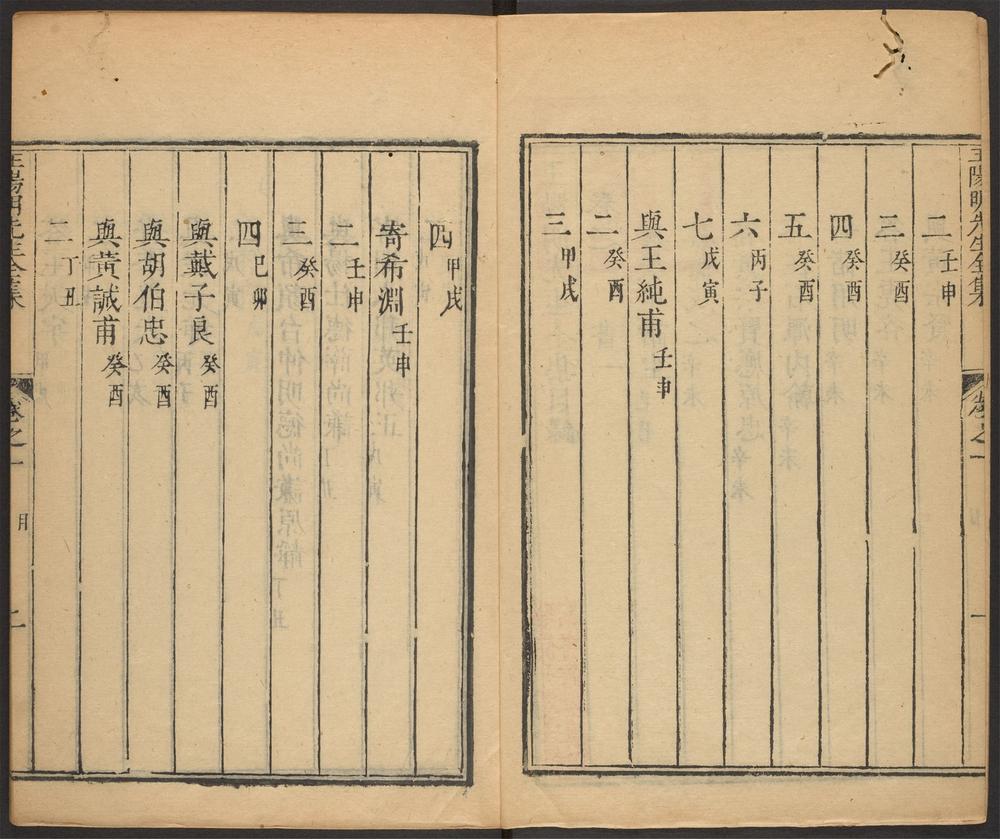 王陽明先生全集 卷之一 一
二 壬申
三 癸酉
四 癸酉
五 癸酉
六 丙子
七 戊寅
與王純甫 壬申
二 癸酉
三 甲戌
四 甲戌
寄希淵 壬申
二 壬申
三 癸酉
四 己卯
與戴子良 癸酉
與胡伯忠 癸酉
與黃誠甫 癸酉
二 丁丑
王陽明先生全集 卷之一 目 二